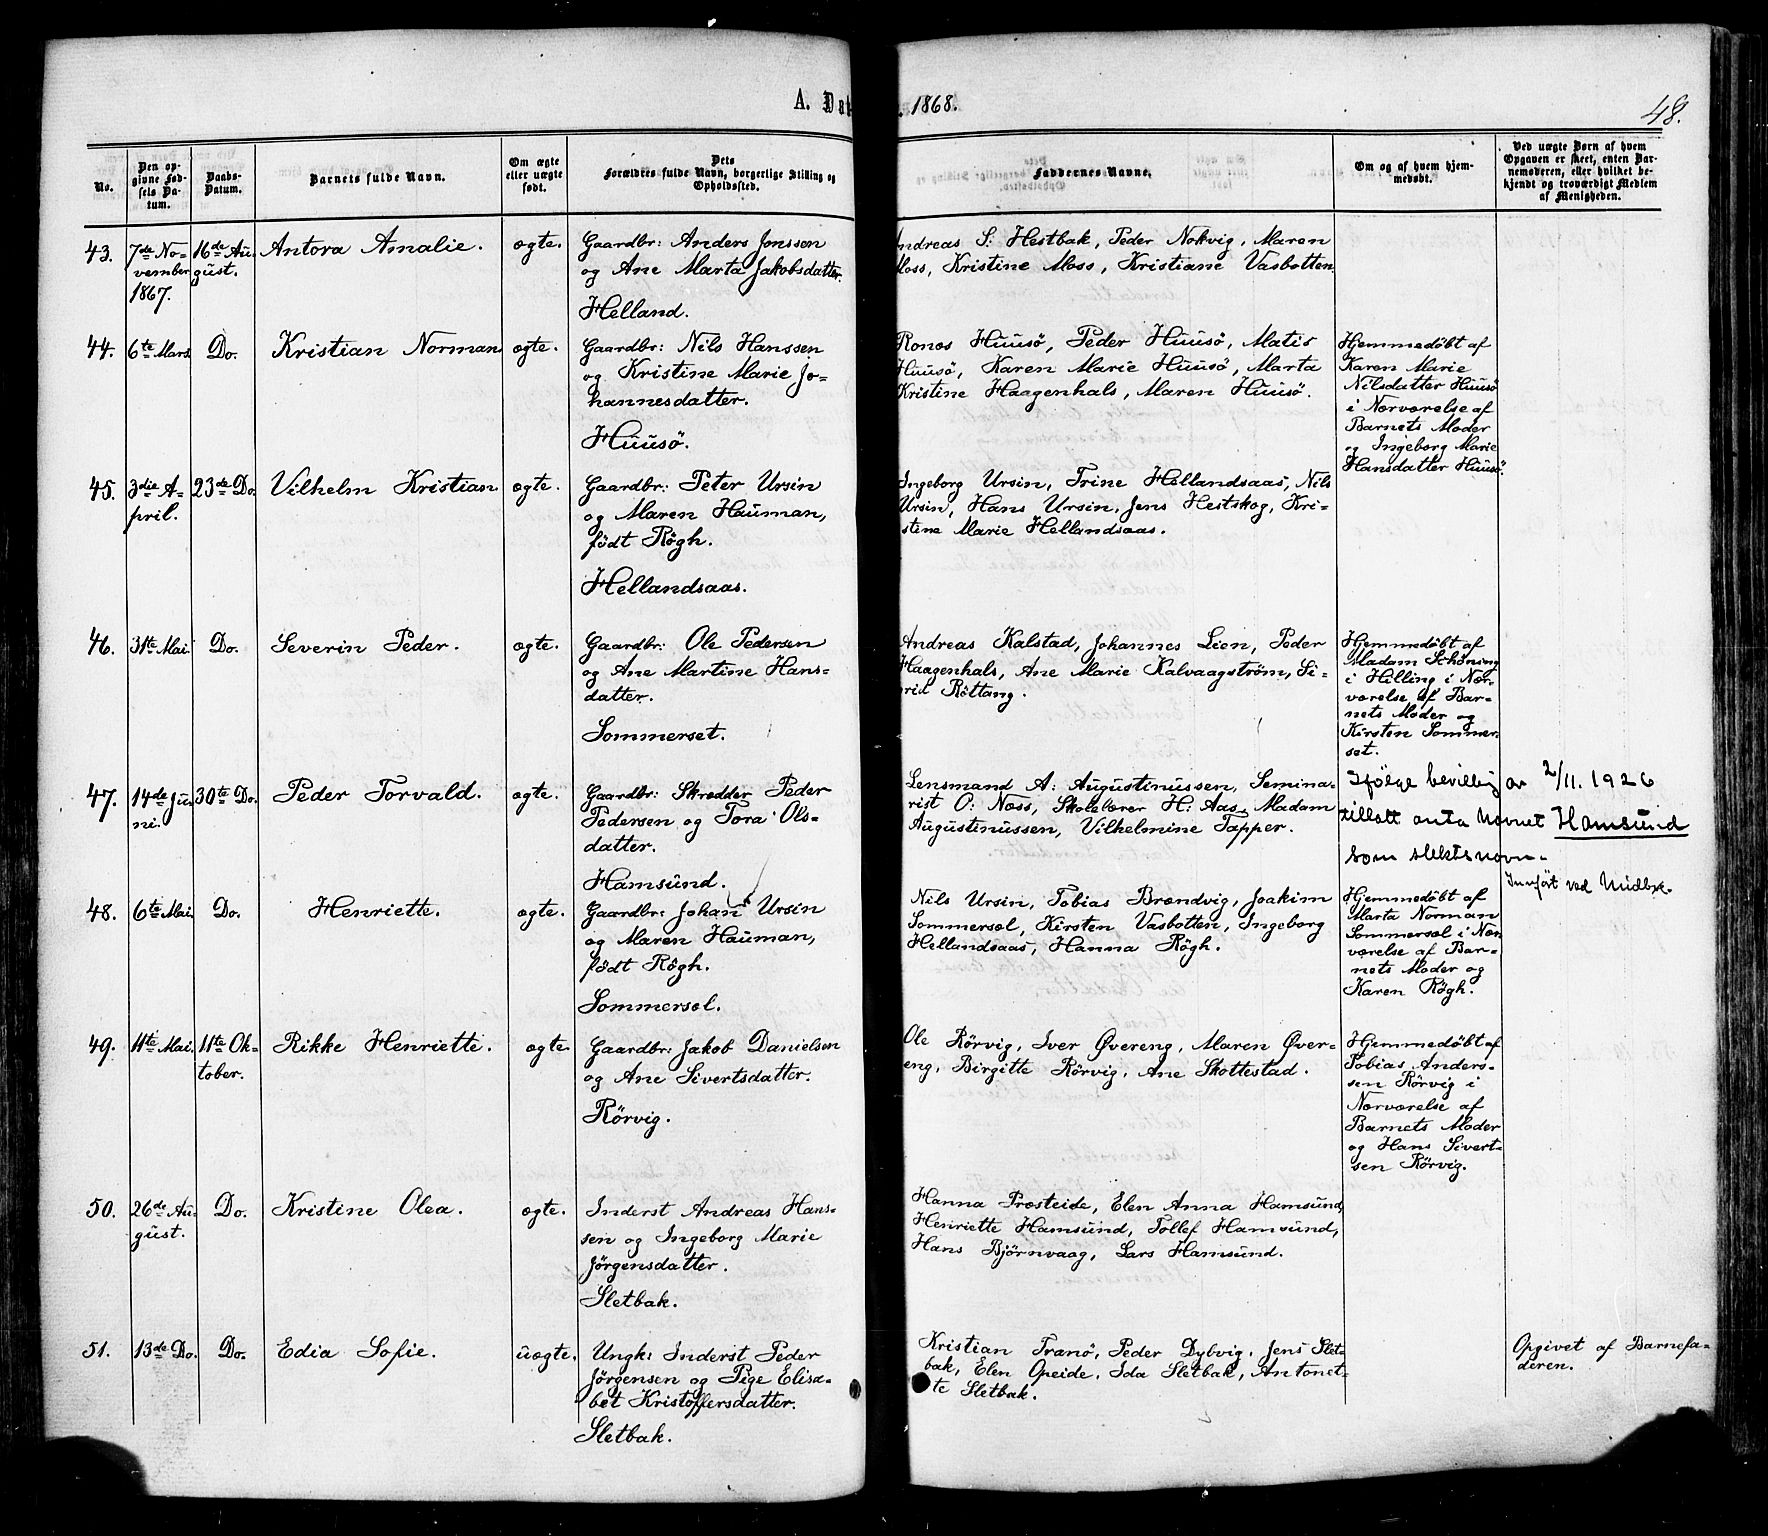 A. Da
1868.
48.
No.
Den op-
givne Fød-
sels Da-
tum.
Daabs-
Datum.
Barnets fulde Navn.
Om ægte
eller uægte
født.
Dets
Forældres fulde Navn, borgerlige Stilling og
Opholdssted.
Faddernes Navne.
Om og af hvem hjem-
medøbt.
Ved uægte Børn af hvem
Opgaven er skeet, enten Bar-
nemoderen, eller hvilket be-
kjendt og troværdigt Medlem
af Menigheden.
43.
7de No-
vember
1867.
16de Au-
gust.
Antora Amalie.
ægte.
Gaardbr: Anders Jonssen
og Ane Marta Jakobsdatter.
Helland.
Andreas S: Hestbak, Peder Nokvig, Maren
Moss, Kristine Moss, Kristiane Vasbotten.
44.
6te Mars
Do.
Kristian Norman
ægte.
Gaardbr: Nils Hanssen
og Kristine Marie Jo-
hannesdatter.
Huusö.
Ronos Huusö, Peder Huusö, Matis
Huusö, Karen Marie Huusö, Marta
Kristine Haagenhals, Maren Huusö.
Hjemmedöbt af
Karen Marie
Nilsdatter Huusö
i Nærværelse af
Barnets Moder
og Ingeborg Marie
Hansdatter Huusö.
45.
3die A-
pril.
23de Do.
Vilhelm Kristian
ægte.
Gaardbr: Peter Ursin
og Maren Hauman,
födt Rögh.
Hellandsaas.
Ingeborg Ursin, Trine Hellandsaas, Nils
Ursin, Hans Ursin, Jens Hestskog, Kri-
stine Marie Hellandsaas.
46.
31te Mai.
Do.
Severin Peder.
ægte.
Gaardbr: Ole Pedersen
og Ane Martine Hans-
datter.
Sommerset.
Andreas Kalstad, Johannes Lien, Peder
Haagenhals, Ane Marie Kalvaagström, Si-
rid Röttang.
Hjemmedöbt af
Madam Schöning
i Hilling i Nær-
værelse af Bar-
nets Moder og
Kirsten Sommer-
set.
47.
14de Ju-
ni.
30te Do.
Peder Torvald.
ægte.
Gaardbr: Skrædder Peder
Pedersen og Tora Ols-
datter.
Hamsund.
Lensmand A: Augustinussen, Semina-
rist O: Næss, Skolelærer H: Aas, Madam
Augustinussen, Vilhelmine Tapper.
Ifølge bevilling av 2/11. 1926
tillatt anta navnet Hamsund
som slektsnavn.
Innført ved Midbøe.
48.
6te Mai.
Do.
Henriette.
ægte.
Gaardbr: Johan Ursin
og Maren Hauman,
födt Rögh.
Sommersel.
Nils Ursin, Tobias Brændvig, Joakim
Sommersel, Kirsten Vasbotten, Ingeborg
Hellandsaas, Hanna Rögh.
Hjemmedöbt af
Marta Norman
Sommersel i Nær-
værelse af Bar-
nets Moder og
Karen Rögh.
49.
11te Mai.
11te Ok-
tober.
Rikke Henriette.
ægte.
Gaardbr: Jakob Danielsen
og Ane Sivertsdatter.
Rörvig.
Ole Rörvig, Iver Övereng, Maren Över-
eng, Birgitte Rörvig, Ane Skottestad.
Hjemmedöbt af
Tobias Anders-
sen Rörvig i
Nærværelse af
Barnets Moder
og Hans Sivert-
sen Rörvig.
50.
26de Au-
gust.
Do.
Kristine Olea.
ægte.
Inderst Andreas Hans-
sen og Ingeborg Marie
Jörgensdatter.
Sletbak.
Hanna Præsteide, Elen Anna Hamsund,
Henriette Hamsund, Tollef Hamsund,
Hans Björnvaag, Lars Hamsund.
51.
13de Do.
Do.
Edia Sofie.
uægte.
Ungk: Inderst Peder
Jörgensen og Pige Elisa-
bet Kristoffersdatter.
Sletbak.
Kristian Tranö, Peder Dybvig, Jens Slet-
bak, Elen Opeide, Ida Sletbak, Antonet-
te Sletbak.
Opgivet af Barnefa-
deren.